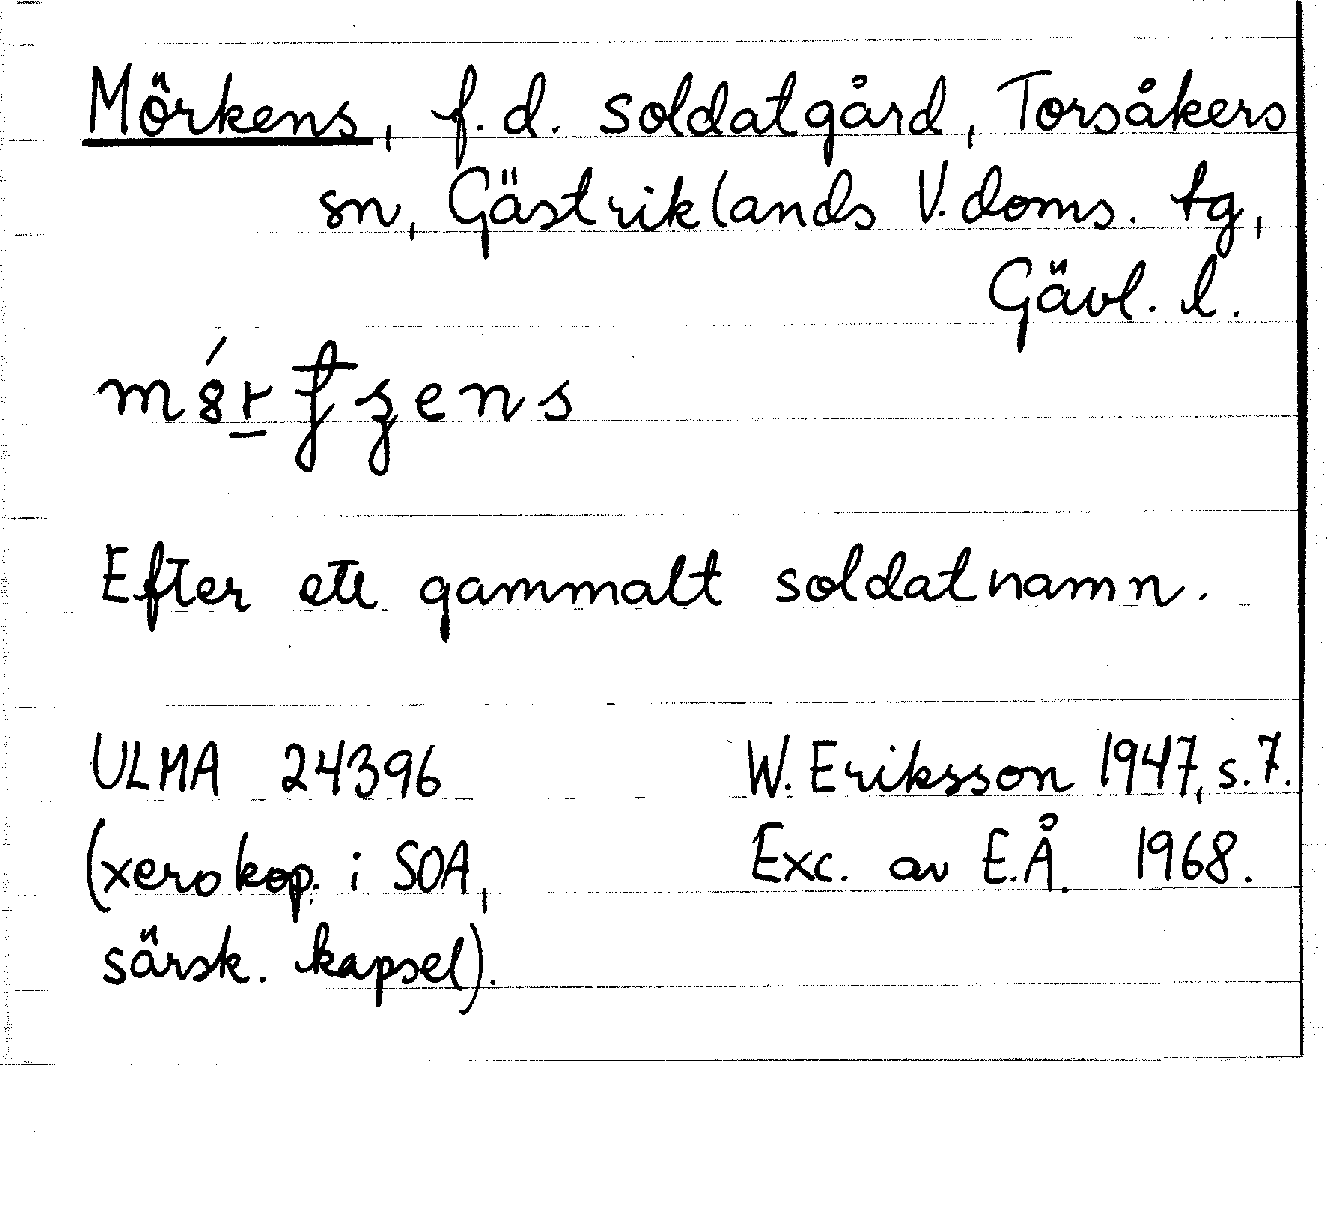 Mörkens, f.d. soldatgård, Torsåkers
sn, Gästriklands V. doms. tg,
Gävl. l.
Efter ett gammalt soldatnamn.
ULMA 24396 W. Eriksson 1947, s. 7.
(xerokop. i SOA, Exc. av E.Å. 1968.
särsk. kapsel).